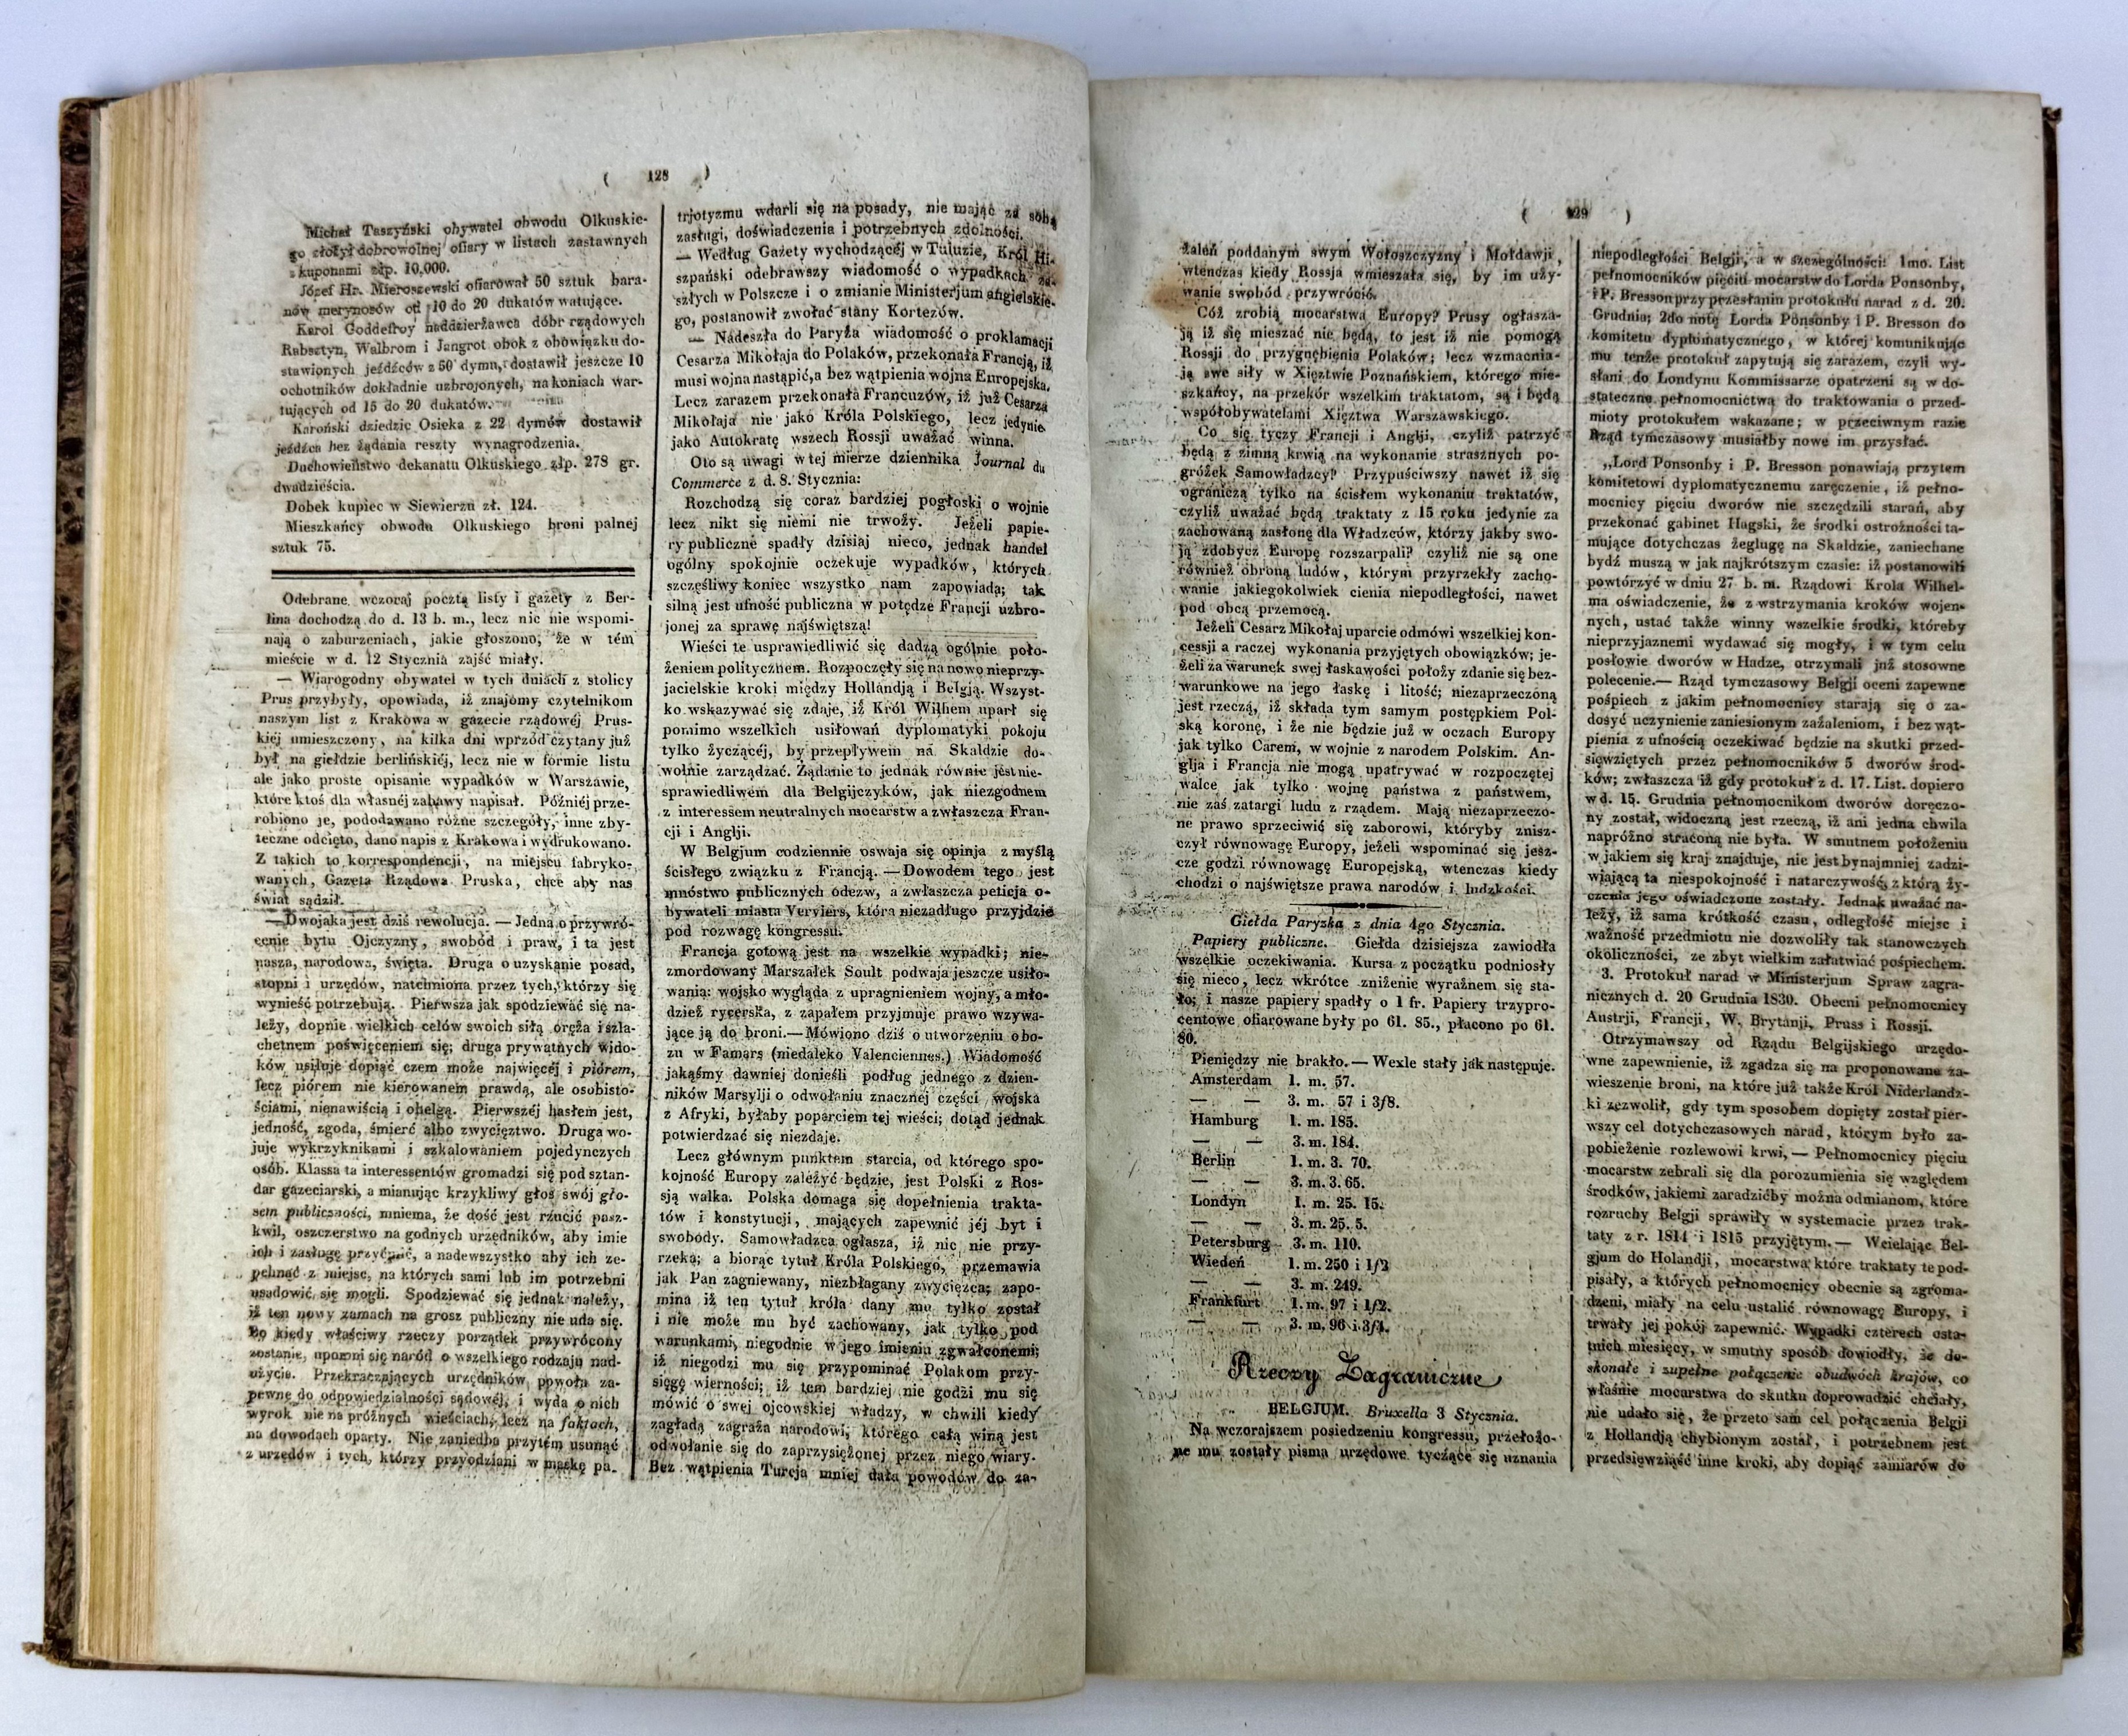 ( 128 )
Michał Taszyński obywatel obwodu Olkuskie-
go złożył dobrowolnej ofiary w listach zastawnych
z kuponami złp. 10,000.
Józef Hr. Mieroszewski ofiarował 50 sztuk bara-
nów merynosów od 10 do 20 dukatów watujące.
Karol Goddeffroy naddzierżawca dóbr rządowych
Rabsztyn, Walbrom i Jangrot obok z obowiązku do-
stawionych jeźdźców z 50 dymu, dostawił jeszcze 10
ochotników dokładnie uzbrojonych, na koniach war-
tujących od 15 do 20 dukatów.
Karoński dziedzic Osieka z 22 dymów dostawił
jeźdźca bez żądania reszty wynagrodzenia.
Duchowieństwo dekanatu Olkuskiego złp. 278 gr.
dwadzieścia.
Dobek kupiec w Siewierzu zł. 124.
Mieszkańcy obwodu Olkuskiego broni palnej
sztuk 75.
Odebrane wczoraj pocztą listy i gazety z Ber-
lina dochodzą do d. 13 b. m., lecz nic nie wspomi-
nają o zaburzeniach, jakie głoszono, że w tém
mieście w d. 12 Stycznia zajść miały.
— Wiarogodny obywatel w tych dniach z stolicy
Prus przybyły, opowiada, iż znajomy czytelnikom
naszym list z Krakowa w gazecie rządowéj Prus-
kiéj umieszczony, na kilka dni wprzód czytany już
był na giełdzie berlińskiéj, lecz nie w formie listu
ale jako proste opisanie wypadków w Warszawie,
które ktoś dla własnéj zabawy napisał. Późniéj prze-
robiono je, pododawano różne szczegóły, inne zby-
teczne odcięto, dano napis z Krakowa i wydrukowano.
Z takich to korrespondencji, na miejscu fabryko-
wanych, Gazeta Rządowa Pruska, chce aby nas
świat sądził.
— Dwojaka jest dziś rewolucja. — Jedna o przywró-
cenie bytu Ojczyzny, swobód i praw, i ta jest
nasza, narodowa, święta. Druga o uzyskanie posad,
stopni i urzędów, natchniona przez tych, którzy się
wynieść potrzebują. Pierwsza jak spodziewać się na-
leży, dopnie wielkich celów swoich siłą oręża i szla-
chetnem poświęceniem się; druga prywatnych wido-
ków usiłuje dopiąć czem może najwięcéj i piórem,
lecz piórem nie kierowanem prawdą, ale osobisto-
ściami, nienawiścią i obelgą. Pierwszéj hasłem jest,
jedność, zgoda, śmierć albo zwycięztwo. Druga wo-
juje wykrzyknikami i szkalowaniem pojedynczych
osób. Klassa ta interessentów gromadzi się pod sztan-
dar gazeciarski, a mianując krzykliwy głos swój gło-
sem publiczności, mniema, że dość jest rzucić pasz-
kwil, oszczerstwo na godnych urzędników, aby imie
ich i zasługę przyćmić, a nadewszystko aby ich ze-
pchnąć z miejsc, na których sami lub im potrzebni
usadowić się mogli. Spodziewać się jednak należy,
iż ten nowy zamach na grosz publiczny nie uda się.
Bo kiedy właściwy rzeczy porządek przywrócony
zostanie, upomni się naród o wszelkiego rodzaju nad-
użycie. Przekraczających urzędników powoła za-
pewne do odpowiedzialności sądowéj, i wyda o nich
wyrok nie na próżnych wieściach, lecz na faktach,
na dowodach oparty. Nie zaniedba przytém usunąć
z urzędów i tych, którzy przyodziani w maskę pa-
trjotyzmu wdarli się na posady, nie mając za sobą
zasługi, doświadczenia i potrzebnych zdolności.
— Według Gazety wychodzącéj w Tuluzie, Król Hi-
szpański odebrawszy wiadomość o wypadkach za-
szłych w Polszcze i o zmianie Ministerjum angielskie-
go, postanowił zwołać stany Kortezów.
— Nadeszła do Paryża wiadomość o proklamacji
Cesarza Mikołaja do Polaków, przekonała Francją, iż
musi wojna nastąpić, a bez wątpienia wojna Europejska.
Lecz zarazem przekonała Francuzów, iż już Cesarza
Mikołaja nie jako Króla Polskiego, lecz jedynie
jako Autokratę wszech Rossji uważać winna.
Oto są uwagi w tej mierze dziennika Journal du
Commerce z d. 8. Stycznia:
Rozchodzą się coraz bardziej pogłoski o wojnie
lecz nikt się niemi nie trwoży. Jeżeli papie-
ry publiczne spadły dzisiaj nieco, jednak handel
ogólny spokojnie oczekuje wypadków, których
szczęśliwy koniec wszystko nam zapowiada; tak
silną jest ufność publiczna w potędze Francji uzbro-
jonej za sprawę najświętszą!
Wieści te usprawiedliwić się dadzą ogólnie poło-
żeniem politycznem. Rozpoczęły się na nowo nieprzy-
jacielskie kroki między Hollandją i Belgją. Wszyst-
ko wskazywać się zdaje, iż Król Wilhem uparł się
pomimo wszelkich usiłowań dyplomatyki pokoju
tylko życzącéj, by przepływem na Skaldzie do-
wolnie zarządzać. Żądanie to jednak równie jest nie-
sprawiedliwem dla Belgijczyków, jak niezgodnem
z interessem neutralnych mocarstw a zwłaszcza Fran-
cji i Anglji.
W Belgjum codziennie oswaja się opinja z myślą
ścisłego związku z Francją. — Dowodem tego jest
mnóstwo publicznych odezw, a zwłaszcza peticja o-
bywateli miasta Verviers, która niezadługo przyjdzie
pod rozwagę kongressu.
Francja gotową jest na wszelkie wypadki; nie-
zmordowany Marszałek Soult podwaja jeszcze usiło-
wania: wojsko wygląda z upragnieniem wojny, a mło-
dzież rycerska, z zapałem przyjmuje prawo wzywa-
jące ją do broni. — Mówiono dziś o utworzeniu obo-
zu w Famars (niedaleko Valenciennes.) Wiadomość
jakąśmy dawniej donieśli podług jednego z dzien-
ników Marsylji o odwołaniu znacznej części wojska
z Afryki, byłaby poparciem tej wieści; dotąd jednak
potwierdzać się niezdaje.
Lecz głównym punktem starcia, od którego spo-
kojność Europy zależyć będzie, jest Polski z Ros-
sją walka. Polska domaga się dopełnienia trakta-
tów i konstytucji, mających zapewnić jéj byt i
swobody. Samowładzca ogłasza, iż nic nie przy-
rzeka; a biorąc tytuł Króla Polskiego, przemawia
jak Pan zagniewany, niezbłagany zwycięzca; zapo-
mina iż ten tytuł króla dany mu tylko został
i nie może mu być zachowany, jak tylko pod
warunkami, niegodnie w jego imieniu zgwałconemi;
iż niegodzi mu się przypominać Polakom przy-
sięgę wierności; iż tem bardziej nie godzi mu się
mówić o swej ojcowskiej władzy, w chwili kiedy
zagładą zagraża narodowi, którego całą winą jest
odwołanie się do zaprzysiężonej przez niego wiary.
Bez wątpienia Turcja mniej dała powodów do za-
( 129 )
żaleń poddanym swym Wołoszczyzny i Mołdawji,
wtenczas kiedy Rossja wmieszała się, by im uży-
wanie swobód przywrócić.
Cóż zrobią mocarstwa Europy? Prusy ogłasza-
ją iż się mieszać nie będą, to jest iż nie pomogą
Rossji do przygnębienia Polaków; lecz wzmacnia-
ją swe siły w Xięztwie Poznańskiem, którego mie-
szkańcy, na przekór wszelkim traktatom, są i będą
współobywatelami Xięztwa Warszawskiego.
Co się tyczy Francji i Anglji, czyliż patrzyć
będą z zimną krwią na wykonanie strasznych po-
gróżek Samowładzcy? Przypuściwszy nawet iż się
ograniczą tylko na ścisłem wykonaniu traktatów,
czyliż uważać będą traktaty z 15 roku jedynie za
zachowaną zasłonę dla Władzców, którzy jakby swo-
ją zdobycz Europę rozszarpali? czyliż nie są one
również obroną ludów, którym przyrzekły zacho-
wanie jakiegokolwiek cienia niepodległości, nawet
pod obcą przemocą.
Jeżeli Cesarz Mikołaj uparcie odmówi wszelkiej kon-
cessji a raczej wykonania przyjętych obowiązków; je-
żeli za warunek swej łaskawości położy zdanie się bez-
warunkowe na jego łaskę i litość; niezaprzeczoną
jest rzeczą, iż składa tym samym postępkiem Pol-
ską koronę, i że nie będzie już w oczach Europy
jak tylko Carem, w wojnie z narodem Polskim. An-
glja i Francja nie mogą upatrywać w rozpoczętej
walce jak tylko wojnę państwa z państwem,
nie zaś zatargi ludu z rządem. Mają niezaprzeczo-
ne prawo sprzeciwić się zaborowi, któryby znisz-
czył równowagę Europy, jeżeli wspominać się jesz-
cze godzi równowagę Europejską, wtenczas kiedy
chodzi o najświętsze prawa narodów i ludzkości.
Giełda Paryzka z dnia 4go Stycznia.
Papiery publiczne. Giełda dzisiejsza zawiodła
wszelkie oczekiwania. Kursa z początku podniosły
się nieco, lecz wkrótce zniżenie wyraźnem się sta-
ło; i nasze papiery spadły o 1 fr. Papiery trzypro-
centowe ofiarowane były po 61. 85., płacono po 61.
80.
Pieniędzy nie brakło. — Wexle stały jak następuje.
Amsterdam 1. m. 57.
— — 3. m. 57 i 3/8.
Hamburg 1. m. 185.
— — 3. m. 184.
Berlin 1. m. 3. 70.
— — 3. m. 3. 65.
Londyn 1. m. 25. 15.
— — 3. m. 25. 5.
Petersburg 3. m. 110.
Wiedeń 1. m. 250 i 1/2
— — 3. m. 249.
Frankfurt 1. m. 97 i 1/2.
— — 3. m. 96 i 3/4.
Rzeczy Zagraniczne
BELGJUM. Bruxella 3 Stycznia.
Na wczorajszem posiedzeniu kongressu, przełożo-
ne mu zostały pisma urzędowe tyczące się uznania
niepodległości Belgji, a w szczególności: 1mo. List
pełnomocników pięciu mocarstw do Lorda Ponsonby,
i P. Bresson przy przesłaniu protokułu narad z d. 20.
Grudnia; 2do notę Lorda Ponsonby i P. Bresson do
komitetu dyplomatycznego, w której komunikując
mu tenże protokuł zapytują się zarazem, czyli wy-
słani do Londynu Kommissarze opatrzeni są w do-
stateczne pełnomocnictwa do traktowania o przed-
mioty protokułem wskazane; w przeciwnym razie
Rząd tymczasowy musiałby nowe im przysłać.
„Lord Ponsonby i P. Bresson ponawiają przytem
komitetowi dyplomatycznemu zaręczenie, iż pełno-
mocnicy pięciu dworów nie szczędzili starań, aby
przekonać gabinet Hagski, że środki ostrożności ta-
mujące dotychczas żeglugę na Skaldzie, zaniechane
bydź muszą w jak najkrótszym czasie: iż postanowili
powtórzyć w dniu 27 b. m. Rządowi Krola Wilhel-
ma oświadczenie, że z wstrzymania kroków wojen-
nych, ustać także winny wszelkie środki, któreby
nieprzyjaznemi wydawać się mogły, i w tym celu
posłowie dworów w Hadze, otrzymali już stosowne
polecenie. — Rząd tymczasowy Belgji oceni zapewne
pośpiech z jakim pełnomocnicy starają się o za-
dosyć uczynienie zaniesionym zażaleniom, i bez wąt-
pienia z ufnością oczekiwać będzie na skutki przed-
sięwziętych przez pełnomocników 5 dworów środ-
ków; zwłaszcza iż gdy protokuł z d. 17. List. dopiero
w d. 15. Grudnia pełnomocnikom dworów doręczo-
ny został, widoczną jest rzeczą, iż ani jedna chwila
napróżno straconą nie była. W smutnem położeniu
w jakiem się kraj znajduje, nie jest bynajmniej zadzi-
wiającą ta niespokojność i natarczywość, z którą ży-
czenia jego oświadczone zostały. Jednak uważać na-
leży, iż sama krótkość czasu, odległość miejsc i
ważność przedmiotu nie dozwoliły tak stanowczych
okoliczności, ze zbyt wielkim załatwiać pośpiechem.
3. Protokuł narad w Ministerjum Spraw zagra-
nicznych d. 20 Grudnia 1830. Obecni pełnomocnicy
Austrji, Francji, W. Brytanji, Pruss i Rossji.
Otrzymawszy od Rządu Belgijskiego urzędo-
wne zapewnienie, iż zgadza się na proponowane za-
wieszenie broni, na które już także Król Niderlandz-
ki zezwolił, gdy tym sposobem dopięty został pier-
wszy cel dotychczasowych narad, którym było za-
pobieżenie rozlewowi krwi, — Pełnomocnicy pięciu
mocarstw zebrali się dla porozumienia się względem
środków, jakiemi zaradzićby można odmianom, które
rozruchy Belgji sprawiły w systemacie przez trak-
taty z r. 1814 i 1815 przyjętym. — Wcielając Bel-
gjum do Holandji, mocarstwa które traktaty te pod-
pisały, a których pełnomocnicy obecnie są zgroma-
dzeni, miały na celu ustalić równowagę Europy, i
trwały jej pokój zapewnić. Wypadki czterech osta-
tnich miesięcy, w smutny sposób dowiodły, że do-
skonałe i zupełne połączenie obudwóch krajów, co
właśnie mocarstwa do skutku doprowadzić chciały,
nie udało się, że przeto sam cel połączenia Belgji
z Hollandją chybionym został, i potrzebnem jest
przedsięwziąść inne kroki, aby dopiąć zamiarów do